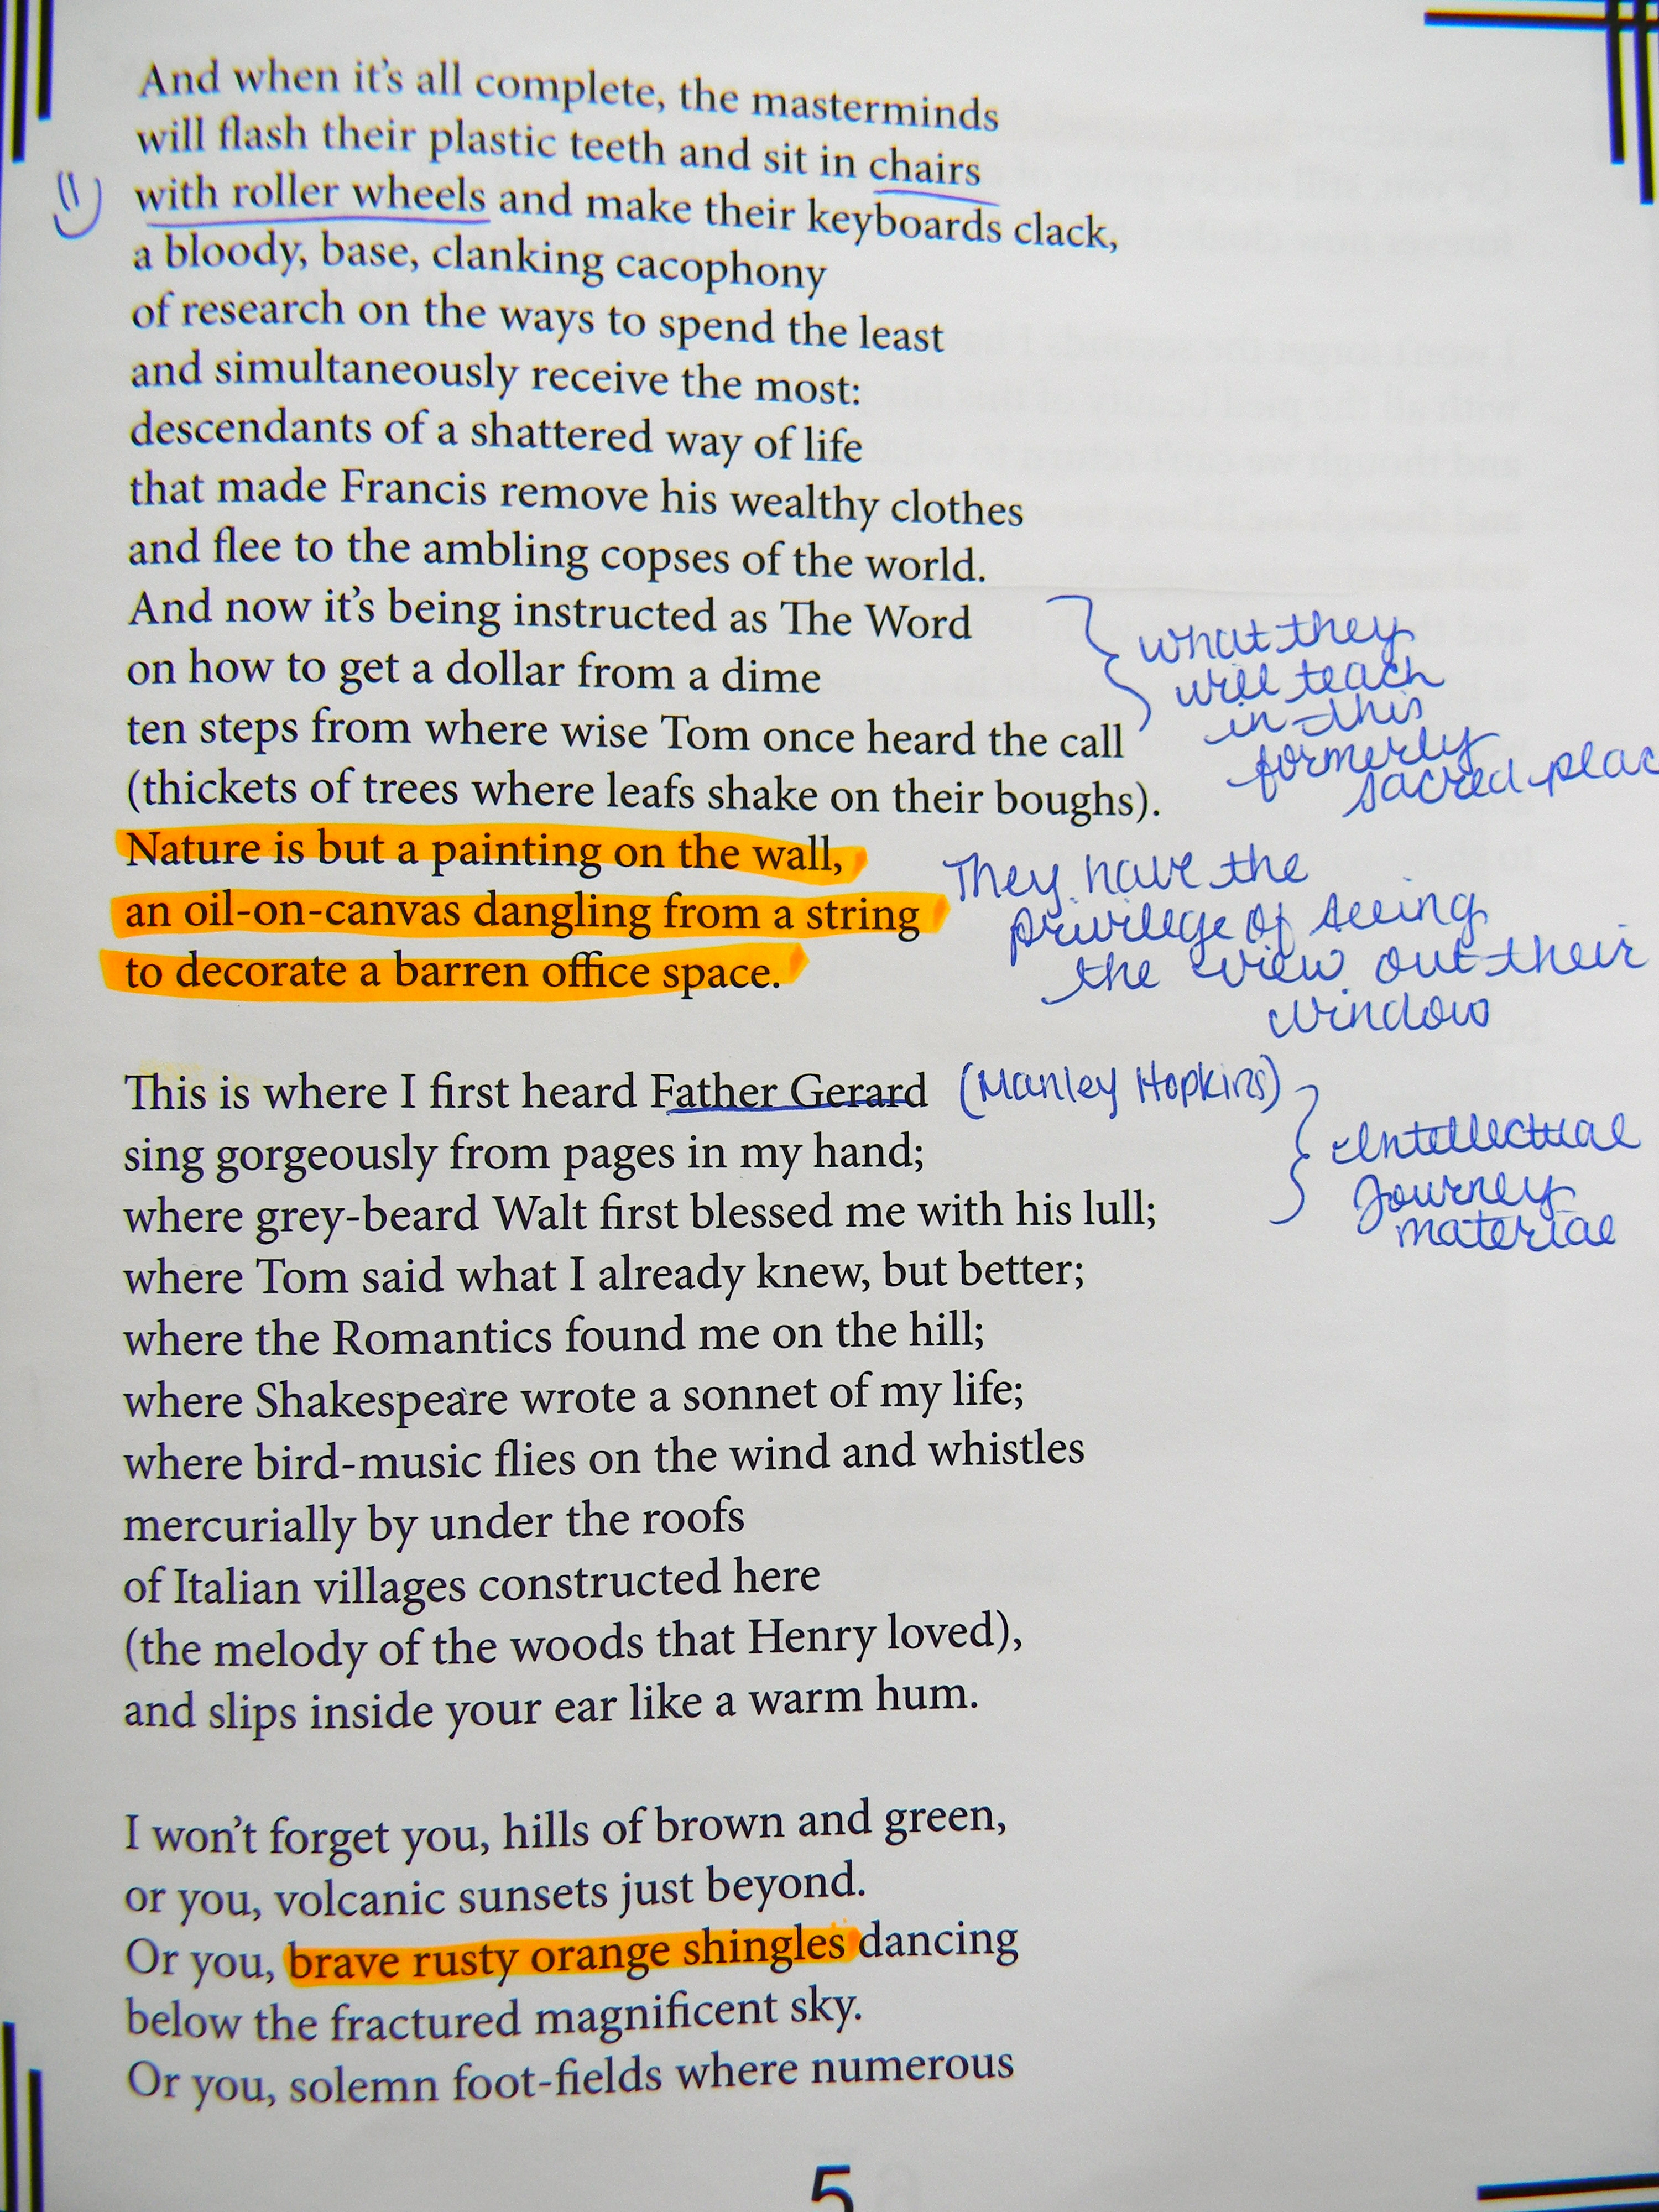 And when it's all complete, the masterminds
will flash their plastic teeth and sit in chairs
with roller wheels and make their keyboards clack,
a bloody, base, clanking cacophony
of research on the ways to spend the least
and simultaneously receive the most:
descendants of a shattered way of life
that made Francis remove his wealthy clothes
and flee to the ambling copses of the world.
And now it's being instructed as The Word
on how to get a dollar from a dime
ten steps from where wise Tom once heard the call
(thickets of trees where leafs shake on their boughs).
what they
will teach
in this
formerly
sacred plac
Nature is but a painting on the wall,
an oil-on-canvas dangling from a string
to decorate a barren office space.
They have the
privilege of seeing
the view out their
window
This is where I first heard Father Gerard (Manley Hopkins)
sing gorgeously from pages in my hand;
where grey-beard Walt first blessed me with his lull;
Intellectual
Journey
material
where Tom said what I already knew, but better;
where the Romantics found me on the hill;
where Shakespeare wrote a sonnet of my life;
where bird-music flies on the wind and whistles
mercurially by under the roofs
of Italian villages constructed here
(the melody of the woods that Henry loved),
and slips inside your ear like a warm hum.
I won't forget you, hills of brown and green,
or you, volcanic sunsets just beyond.
Or you, brave rusty orange shingles dancing
below the fractured magnificent sky.
Or you, solemn foot-fields where numerous
5